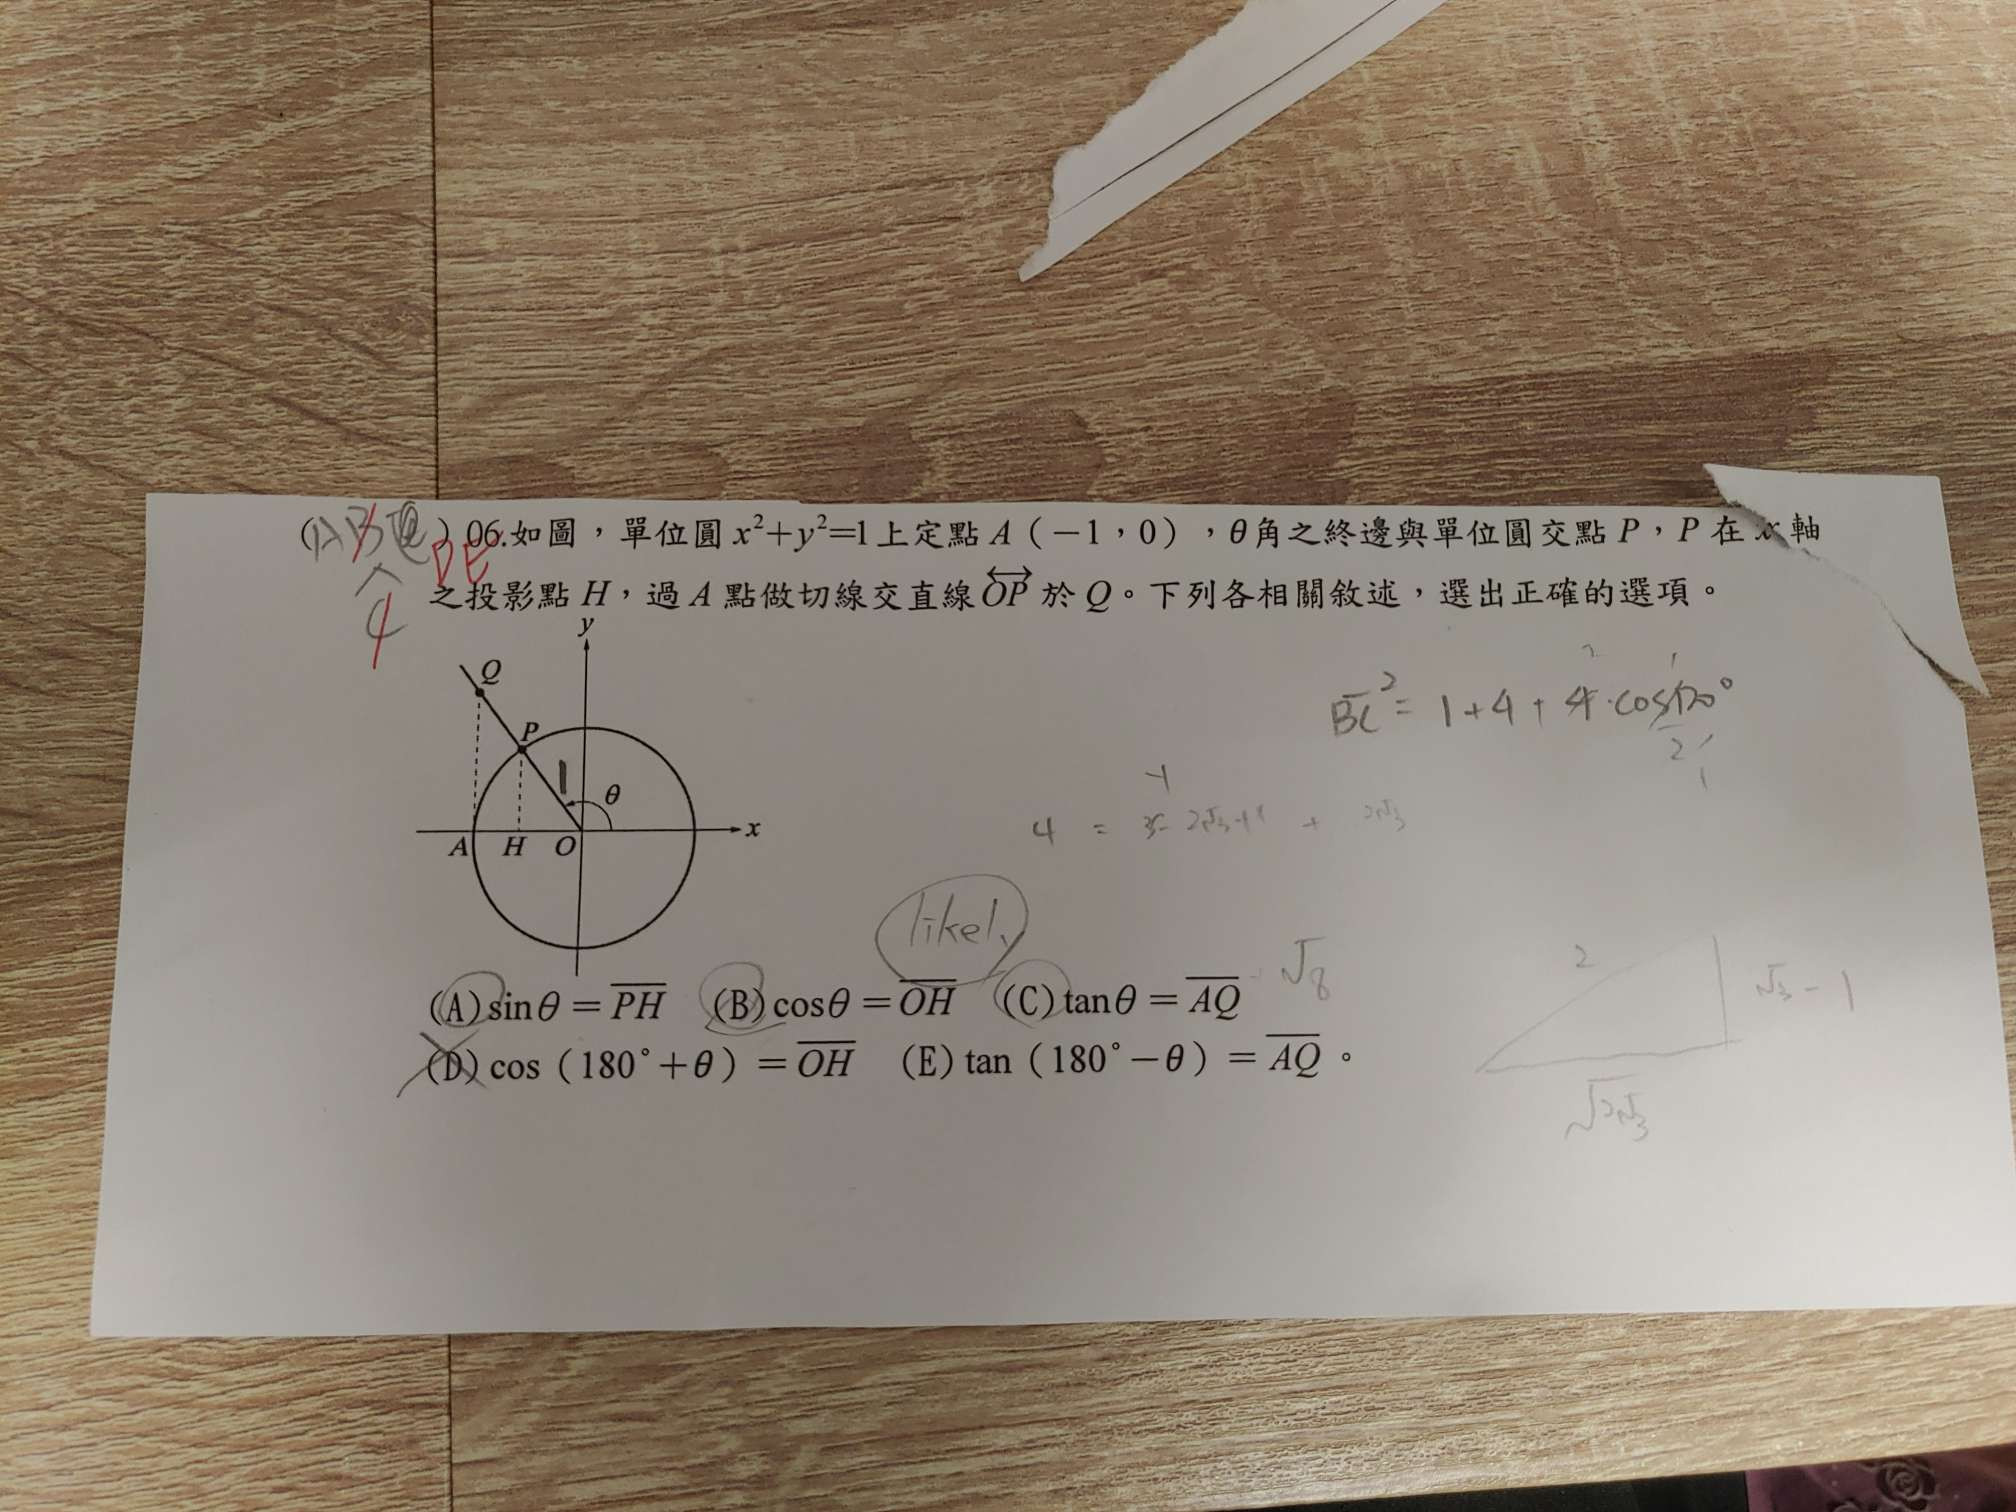 06.如圖，單位圓 x²+y²=1上定點 A（－1，0），θ角之終邊與單位圓交點 P，P 在 x 軸
DE
之投影點 H，過 A 點做切線交直線 OP 於 Q。下列各相關敘述，選出正確的選項。
4
y
Q
P
1
θ
A H O x
BC² = 1+4+4·cos120°
4 =
likely
√8
(A) sinθ = PH (B) cosθ = OH (C) tanθ = AQ
(D) cos（180°＋θ）= OH (E) tan（180°－θ）= AQ。
2
√3 - 1
√2√3